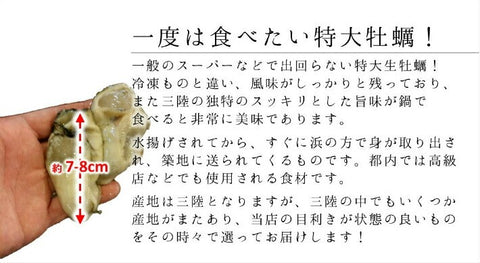 一度は食べたい特大牡蠣！
一般のスーパーなどで出回らない特大生牡蠣！
冷凍ものと違い、風味がしっかりと残っており、
また三陸の独特のスッキリとした旨味が鍋で
食べると非常に美味であります。
水揚げされてから、すぐに浜の方で身が取り出さ
れ、築地に送られてくるものです。都内では高級
店などでも使用される食材です。
産地は三陸となりますが、三陸の中でもいくつか
産地がまたあり、当店の目利きが状態の良いもの
をその時々で選ってお届けします！
約7-8cm